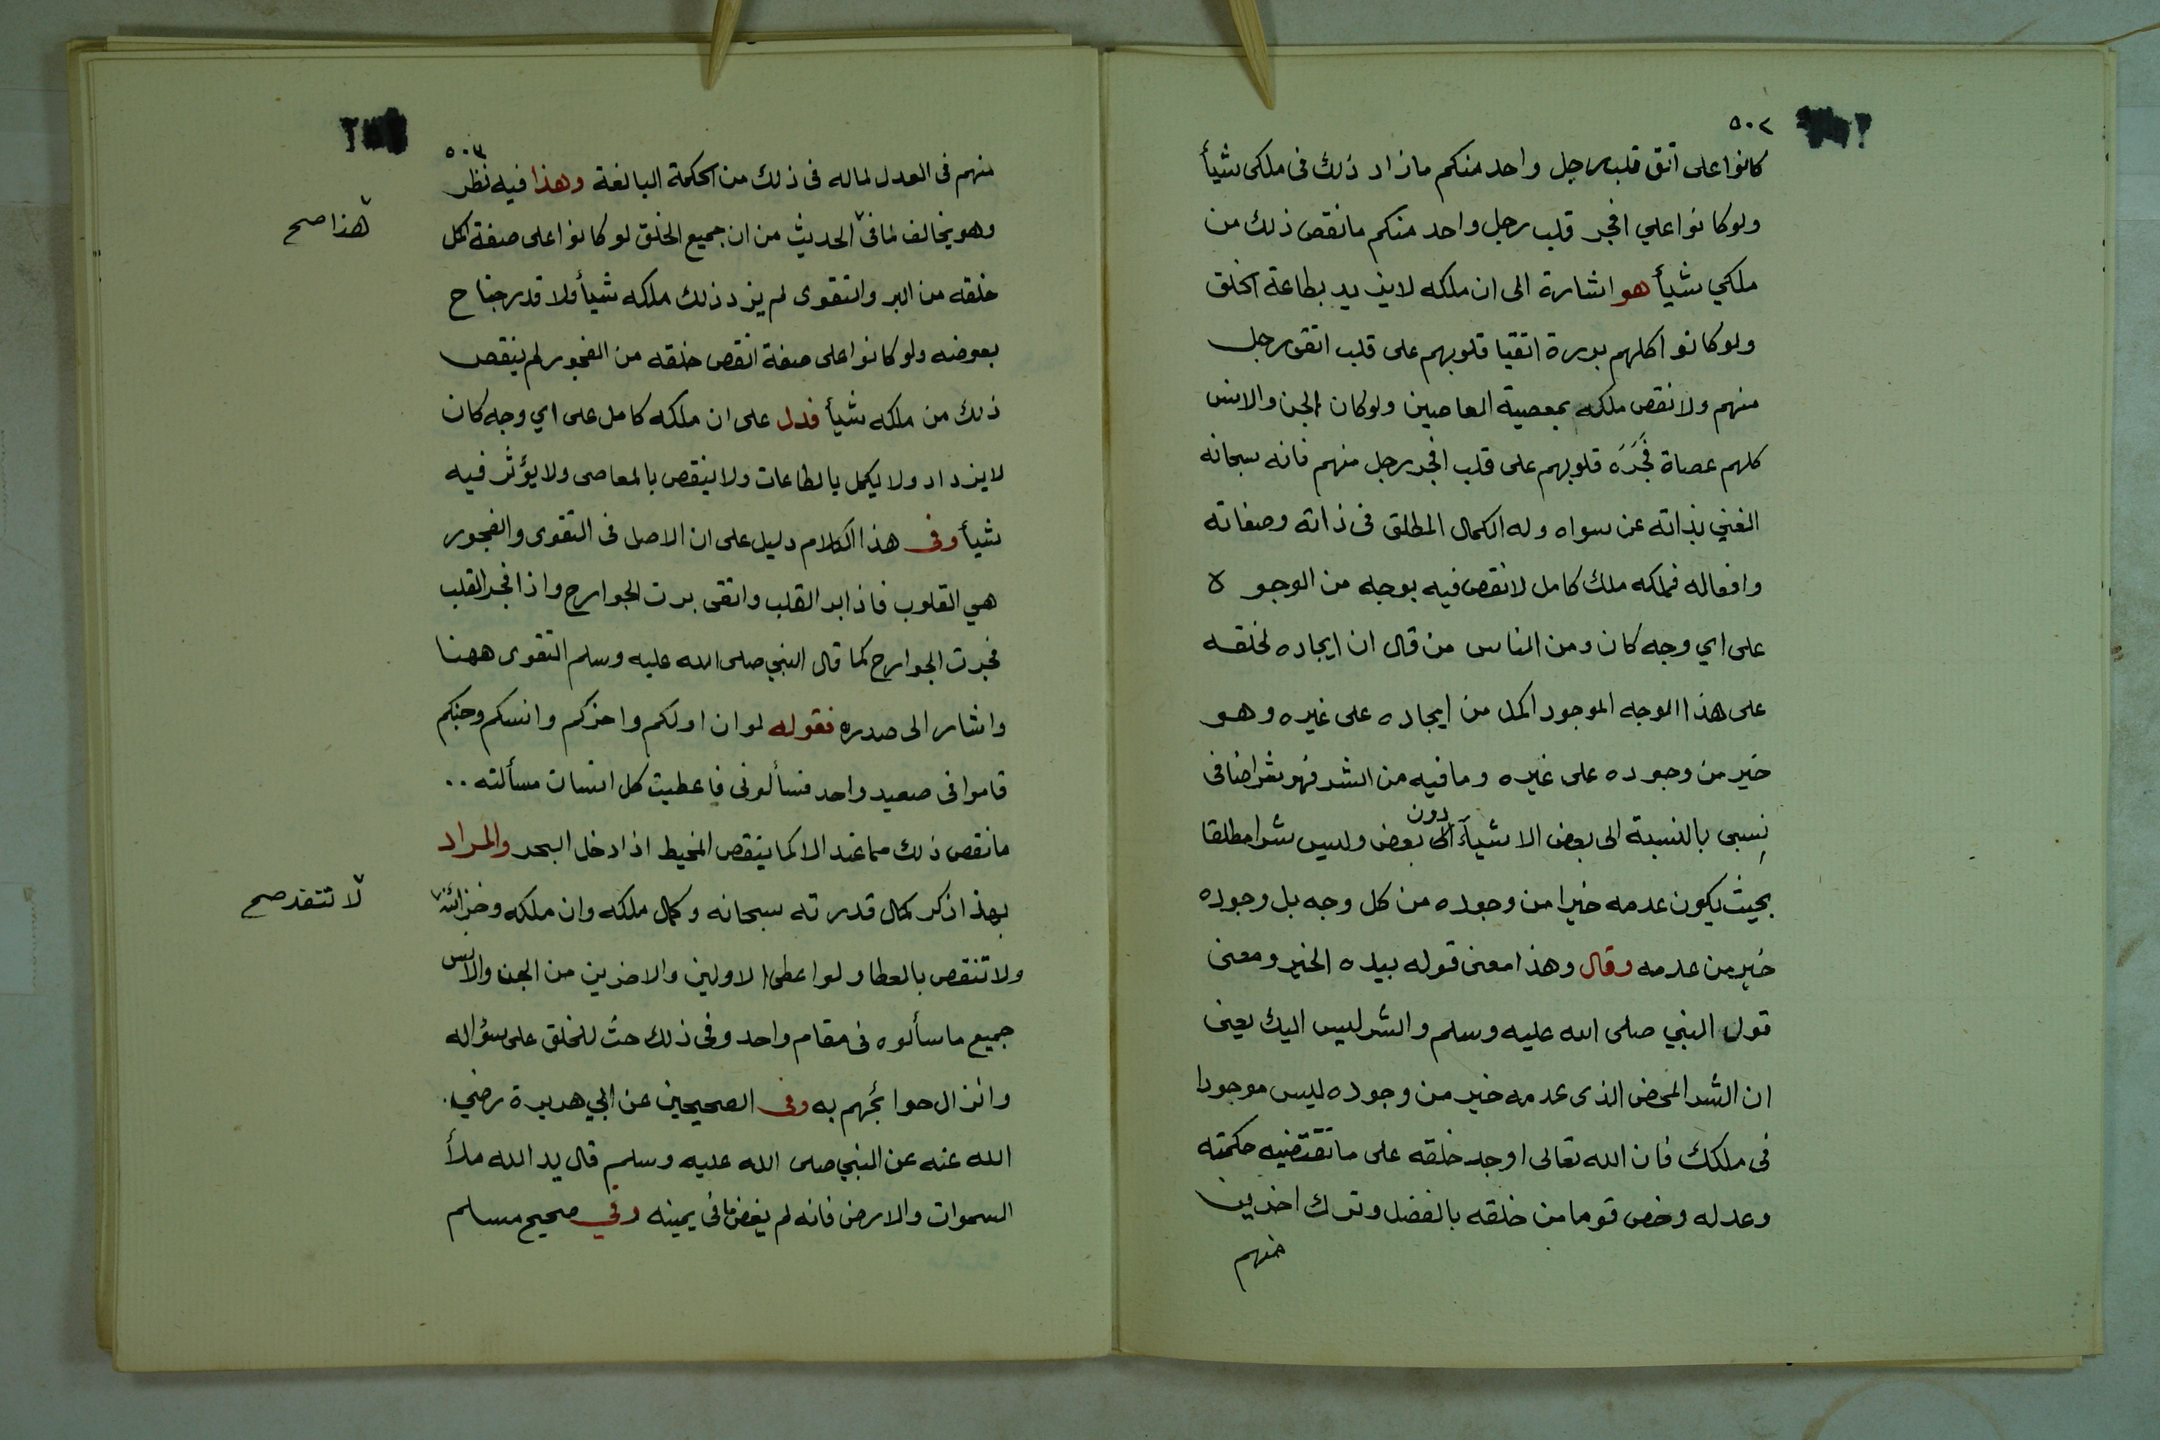 ٥٠٢
كانوا على اتقى قلب رجل واحد منكم ما زاد ذلك فى ملكى شيأ
ولو كانوا علي افجر قلب رجل واحد منكم ما نقص ذلك من
ملكي شيأ هو اشارة الى ان ملكه لا يزيد بطاعة الخلق
ولو كانوا كلهم بررة اتقيا قلوبهم على قلب اتقى رجل
منهم ولا نقص ملكه بمعصية العاصين ولو كان الجن والانس
كلهم عصاة فَجَرَه قلوبهم على قلب افجر رجل منهم فانه سبحانه
الغني بذاته عن سواه وله الكمال المطلق فى ذاته وصفاته
وافعاله فملكه ملك كامل لا نقص فيه بوجه من الوجوه
على اي وجه كان ومن الناس من قال ان ايجاده لخلقه
على هذا الوجه الموجود اكمل من ايجاده على غيره وهو
خير من وجوده على غيره وما فيه من الشر فهو شر اضافى
نسبى بالنسبة الى بعض الاشيآء دون بعض وليس شرا مطلقا
بحيث يكون عدمه خيرا من وجوده من كل وجه بل وجوده
خير من عدمه وقال وهذا معنى قوله بيده الخير ومعنى
قول النبي صلى الله عليه وسلم والشر ليس اليك يعنى
ان الشر المحض الذى عدمه خير من وجوده ليس موجودا
فى ملكك فان الله تعالى اوجد خلقه على ما تقتضيه حكمته
وعدله وخص قوما من خلقه بالفضل وترك اخرين
منهم
٥٠٣
منهم فى العدل لما له فى ذلك من الحكمة البالغة وهذا فيه نظر
وهو يخالف لما فى الحديث من ان جميع الخلق لو كانوا على صفة اكمل
هذا صح
خلقه من البر والتقوى لم يزد ذلك ملكه شيأ ولا قدر جناح
بعوضه ولو كانوا على صفة انقص خلقه من الفجور لم ينقص
ذلك من ملكه شيأ فدل على ان ملكه كامل على اي وجه كان
لا يزداد ولا يكمل بالطاعات ولا ينقص بالمعاصى ولا يؤثر فيه
شيأ وفى هذا الكلام دليل على ان الاصل فى التقوى والفجور
هي القلوب فاذا بر القلب واتقى برت الجوارح واذا فجر القلب
فجرت الجوارح كما قال النبي صلى الله عليه وسلم التقوى ههنا
واشار الى صدره فقوله لو ان اولكم واخركم وانسكم وجنكم
قاموا فى صعيد واحد فسألونى فاعطيت كل انسان مسألته ..
ما نقص ذلك مما عند الا كما ينقص المخيط اذا دخل البحر والمراد
بهذا ذكر كمال قدرته سبحانه وكمال ملكه وان ملكه وخزائنه
لا تنفد صح
ولا تنقص بالعطا ولو اعطى الاولين والاخرين من الجن والانس
جميع ما سألوه فى مقام واحد وفى ذلك حث للخلق على سؤاله
وانزال حوائجهم به وفى الصحيحين عن ابي هريرة رضي
الله عنه عن النبي صلى الله عليه وسلم قال يد الله ملأ
السموات والارض فانه لم يغض ما فى يمينه وفي صحيح مسلم